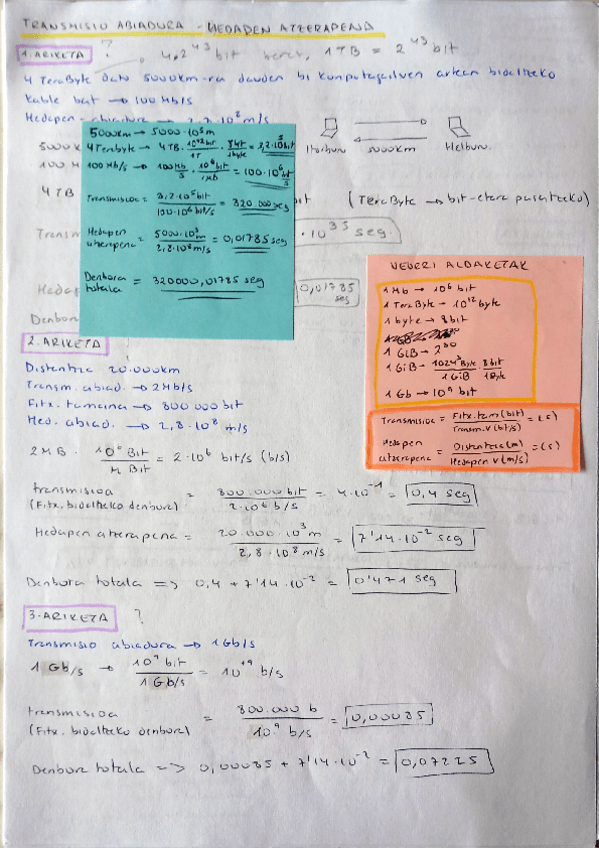 TRANSMISIO ABIADURA - HEDAPEN ATZERAPENA
1. ARIKETA ?
4.2⁴³ bit beraz, 1TB = 2⁴³ bit
4 TeraByte datu 5000km-ra dauden bi konputagailuen artean bidaltzeko
Kable bat → 100 Mb/s
Hedapen - abiadura → 2.8 · 10⁸ m/s
5000 k
100 M
4 TB
Transm
Hedap
Denbor
5000km → 5000 · 10³m
4 Terabyte → 4 TB · 10¹² bit / 1T · 8 bit / 1byte = 3,2 · 10¹³ bit
100 Mb/s → 100 Mb / s · 10⁶ bit / 1MB = 100 · 10⁶ bit / s
Transmisioa = 3,2 · 10¹³ bit / 100 · 10⁶ bit/s = 320 000 seg
Hedapen atzerapena = 5000 · 10³m / 2,8 · 10⁸ m/s = 0,01785 seg
Denbora totala = 320000,01785 seg
Iturburu 5000km Helburu
bit (TeraByte → bit-etara pasatzeko)
· 10³⁵ seg.
0,01785 seg
NEURRI ALDAKETAK
1 Mb → 10⁶ bit
1 TeraByte → 10¹² byte
1 byte → 8 bit
1 GiB → 2³⁰
1 GiB → 1024³ Byte / 1 GiB · 8 bit / 1 Byte
1 Gb → 10⁹ bit
Transmisioa = Fitx. tam (bit) / Transm. v (bit/s) = (s)
Hedapen atzerapena = Distantzia (m) / Hedapen v (m/s) = (s)
2. ARIKETA
Distantzia 20.000km
Transm. abiad. → 2 Mb/s
Fitx. tamaina → 800 000 bit
Hed. abiad. → 2,8 · 10⁸ m/s
2 MB · 10⁶ Bit / M Bit = 2 · 10⁶ bit/s (b/s)
Transmisioa (Fitx. bidaltzeko denbora) = 800.000 bit / 2 · 10⁶ b/s = 4 · 10⁻¹ = 0,4 seg
Hedapen atzerapena = 20.000 · 10³ m / 2,8 · 10⁸ m/s = 7'14 · 10⁻² seg
Denbora totala => 0,4 + 7'14 · 10⁻² = 0'471 seg
3. ARIKETA ?
Transmisio abiadura → 1 Gb/s
1 Gb/s → 10⁹ bit / 1 Gb/s = 10¹⁹ b/s
Transmisioa (Fitx. bidaltzeko denbora) = 800.000 b / 10⁹ b/s = 0,00085
Denbora totala => 0,00085 + 7'14 · 10⁻² = 0,07225